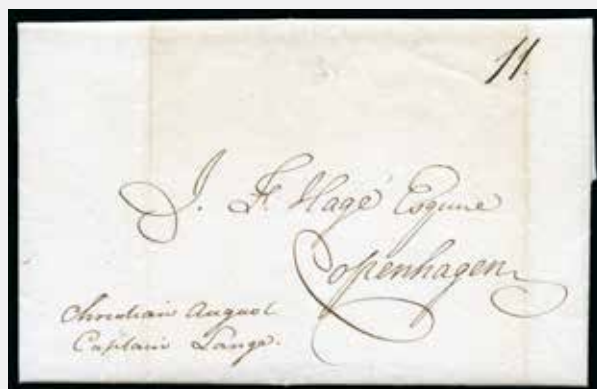 11.
J. F. Hage Esquire
Copenhagen
Christian August
Captain Lange.